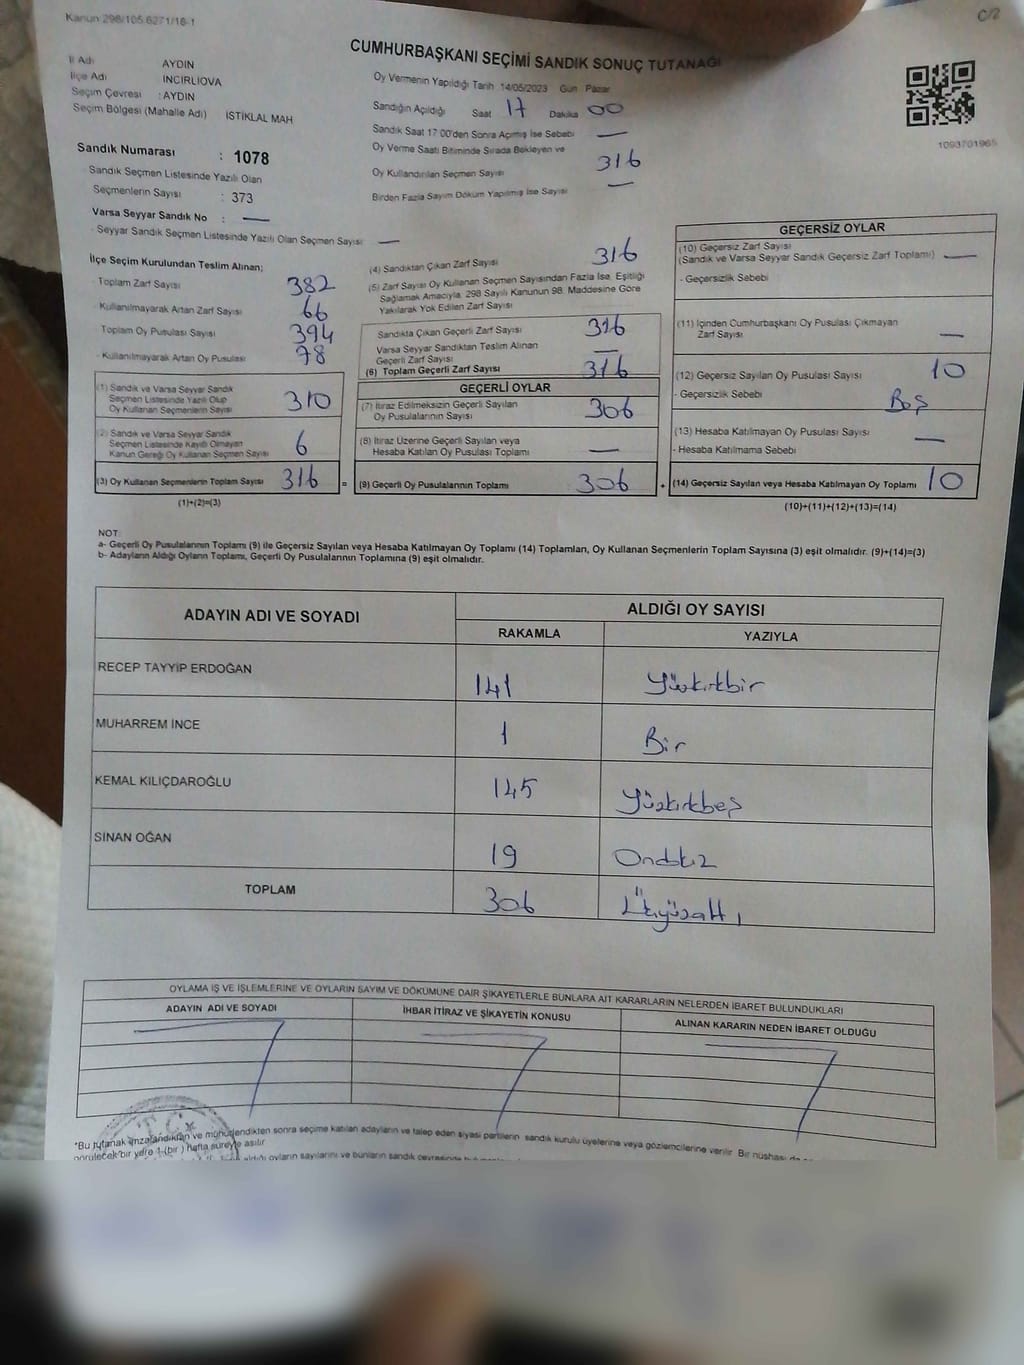 Kanun 298/105.6271/18-1
C/2
CUMHURBAŞKANI SEÇİMİ SANDIK SONUÇ TUTANAĞI
İl Adı AYDIN
İlçe Adı INCIRLIOVA
Seçim Çevresi : AYDIN
Seçim Bölgesi (Mahalle Adı) ISTIKLAL MAH
Sandık Numarası : 1078
Sandık Seçmen Listesinde Yazılı Olan
Seçmenlerin Sayısı : 373
Varsa Seyyar Sandık No : —
- Seyyar Sandık Seçmen Listesinde Yazılı Olan Seçmen Sayısı —
Oy Vermenin Yapıldığı Tarih 14/05/2023 Gün Pazar
Sandığın Açıldığı Saat 17 Dakika 00
Sandık Saat 17 00'den Sonra Açımış İse Sebebi —
Oy Verme Saati Bitiminde Sırada Bekleyen ve
Oy Kullandırılan Seçmen Sayısı 316
Birden Fazla Sayım Döküm Yapılmış İse Sayısı —
1093701965
İlçe Seçim Kurulundan Teslim Alınan;
Toplam Zarf Sayısı 382
Kullanılmayarak Artan Zarf Sayısı 66
Toplam Oy Pusulası Sayısı 394
- Kullanılmayarak Artan Oy Pusulası 78
(1) Sandık ve Varsa Seyyar Sandık
Seçmen Listesinde Yazılı Olup
Oy Kullanan Seçmenlerin Sayısı 310
(2) Sandık ve Varsa Seyyar Sandık
Seçmen Listesinde Kayıtlı Olmayan
Kanun Gereği Oy Kullanan Seçmen Sayısı 6
(3) Oy Kullanan Seçmenlerin Toplam Sayısı 316 =
(1)+(2)=(3)
(4) Sandıktan Çıkan Zarf Sayısı 316
(5) Zarf Sayısı Oy Kullanan Seçmen Sayısından Fazla İse, Eşitliği
Sağlamak Amacıyla, 298 Sayılı Kanunun 98. Maddesine Göre
Yakılarak Yok Edilen Zarf Sayısı
Sandıkta Çıkan Geçerli Zarf Sayısı 316
Varsa Seyyar Sandıktan Teslim Alınan
Geçerli Zarf Sayısı —
(6) Toplam Geçerli Zarf Sayısı 316
GEÇERLİ OYLAR
(7) İtiraz Edilmeksizin Geçerli Sayılan
Oy Pusulalarının Sayısı 306
(8) İtiraz Üzerine Geçerli Sayılan veya
Hesaba Katılan Oy Pusulası Toplamı —
(9) Geçerli Oy Pusulalarının Toplamı 306 +
GEÇERSİZ OYLAR
(10) Geçersiz Zarf Sayısı
(Sandık ve Varsa Seyyar Sandık Geçersiz Zarf Toplamı) —
- Geçersizlik Sebebi
(11) İçinden Cumhurbaşkanı Oy Pusulası Çıkmayan
Zarf Sayısı —
(12) Geçersiz Sayılan Oy Pusulası Sayısı 10
- Geçersizlik Sebebi Boş
(13) Hesaba Katılmayan Oy Pusulası Sayısı —
- Hesaba Katılmama Sebebi
(14) Geçersiz Sayılan veya Hesaba Katılmayan Oy Toplamı 10
(10)+(11)+(12)+(13)=(14)
NOT:
a- Geçerli Oy Pusulalarının Toplamı (9) ile Geçersiz Sayılan veya Hesaba Katılmayan Oy Toplamı (14) Toplamları, Oy Kullanan Seçmenlerin Toplam Sayısına (3) eşit olmalıdır. (9)+(14)=(3)
b- Adayların Aldığı Oyların Toplamı, Geçerli Oy Pusulalarının Toplamına (9) eşit olmalıdır.
ADAYIN ADI VE SOYADI ALDIĞI OY SAYISI
RAKAMLA YAZIYLA
RECEP TAYYİP ERDOĞAN 141 Yüzkırkbir
MUHARREM İNCE 1 Bir
KEMAL KILIÇDAROĞLU 145 Yüzkırkbeş
SİNAN OĞAN 19 Ondokuz
TOPLAM 306 Üçyüzaltı
OYLAMA İŞ VE İŞLEMLERİNE VE OYLARIN SAYIM VE DÖKÜMÜNE DAİR ŞİKAYETLERLE BUNLARA AİT KARARLARIN NELERDEN İBARET BULUNDUKLARI
ADAYIN ADI VE SOYADI İHBAR İTİRAZ VE ŞİKAYETİN KONUSU ALINAN KARARIN NEDEN İBARET OLDUĞU
*Bu tutanak imzalandıktan ve mühürlendikten sonra seçime katılan adayların ve talep eden siyasi partilerin sandık kurulu üyelerine veya gözlemcilerine verilir Bir nüshası da
görülecek bir yere 1 (bir ) hafta süreyle asılır
aldığı oyların sayılarını ve bunların sandık çevresinde